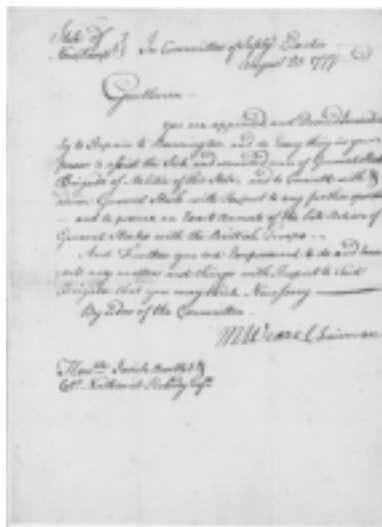 State of
New Hampr } In Committee of Safety Exeter
August 23. 1777
Gentlemen
You are appointed and
to Repair to Bennington, and do Every thing in your
power to assist the Sick and wounded men of General Stark
Brigade of Militia of this State, and to Consult with
General Stark with Respect to any further
and to procure an Exact Account of the Late Actions of
General Starks with the British Troops
And Further you are Impowered to do and
any matters and things with Respect to Said
Brigade that you may think Necessary
By order of the Committee
M Weare Chairman
Honble Josiah Bartlett
Colo. Nathaniel Peabody Esqrs